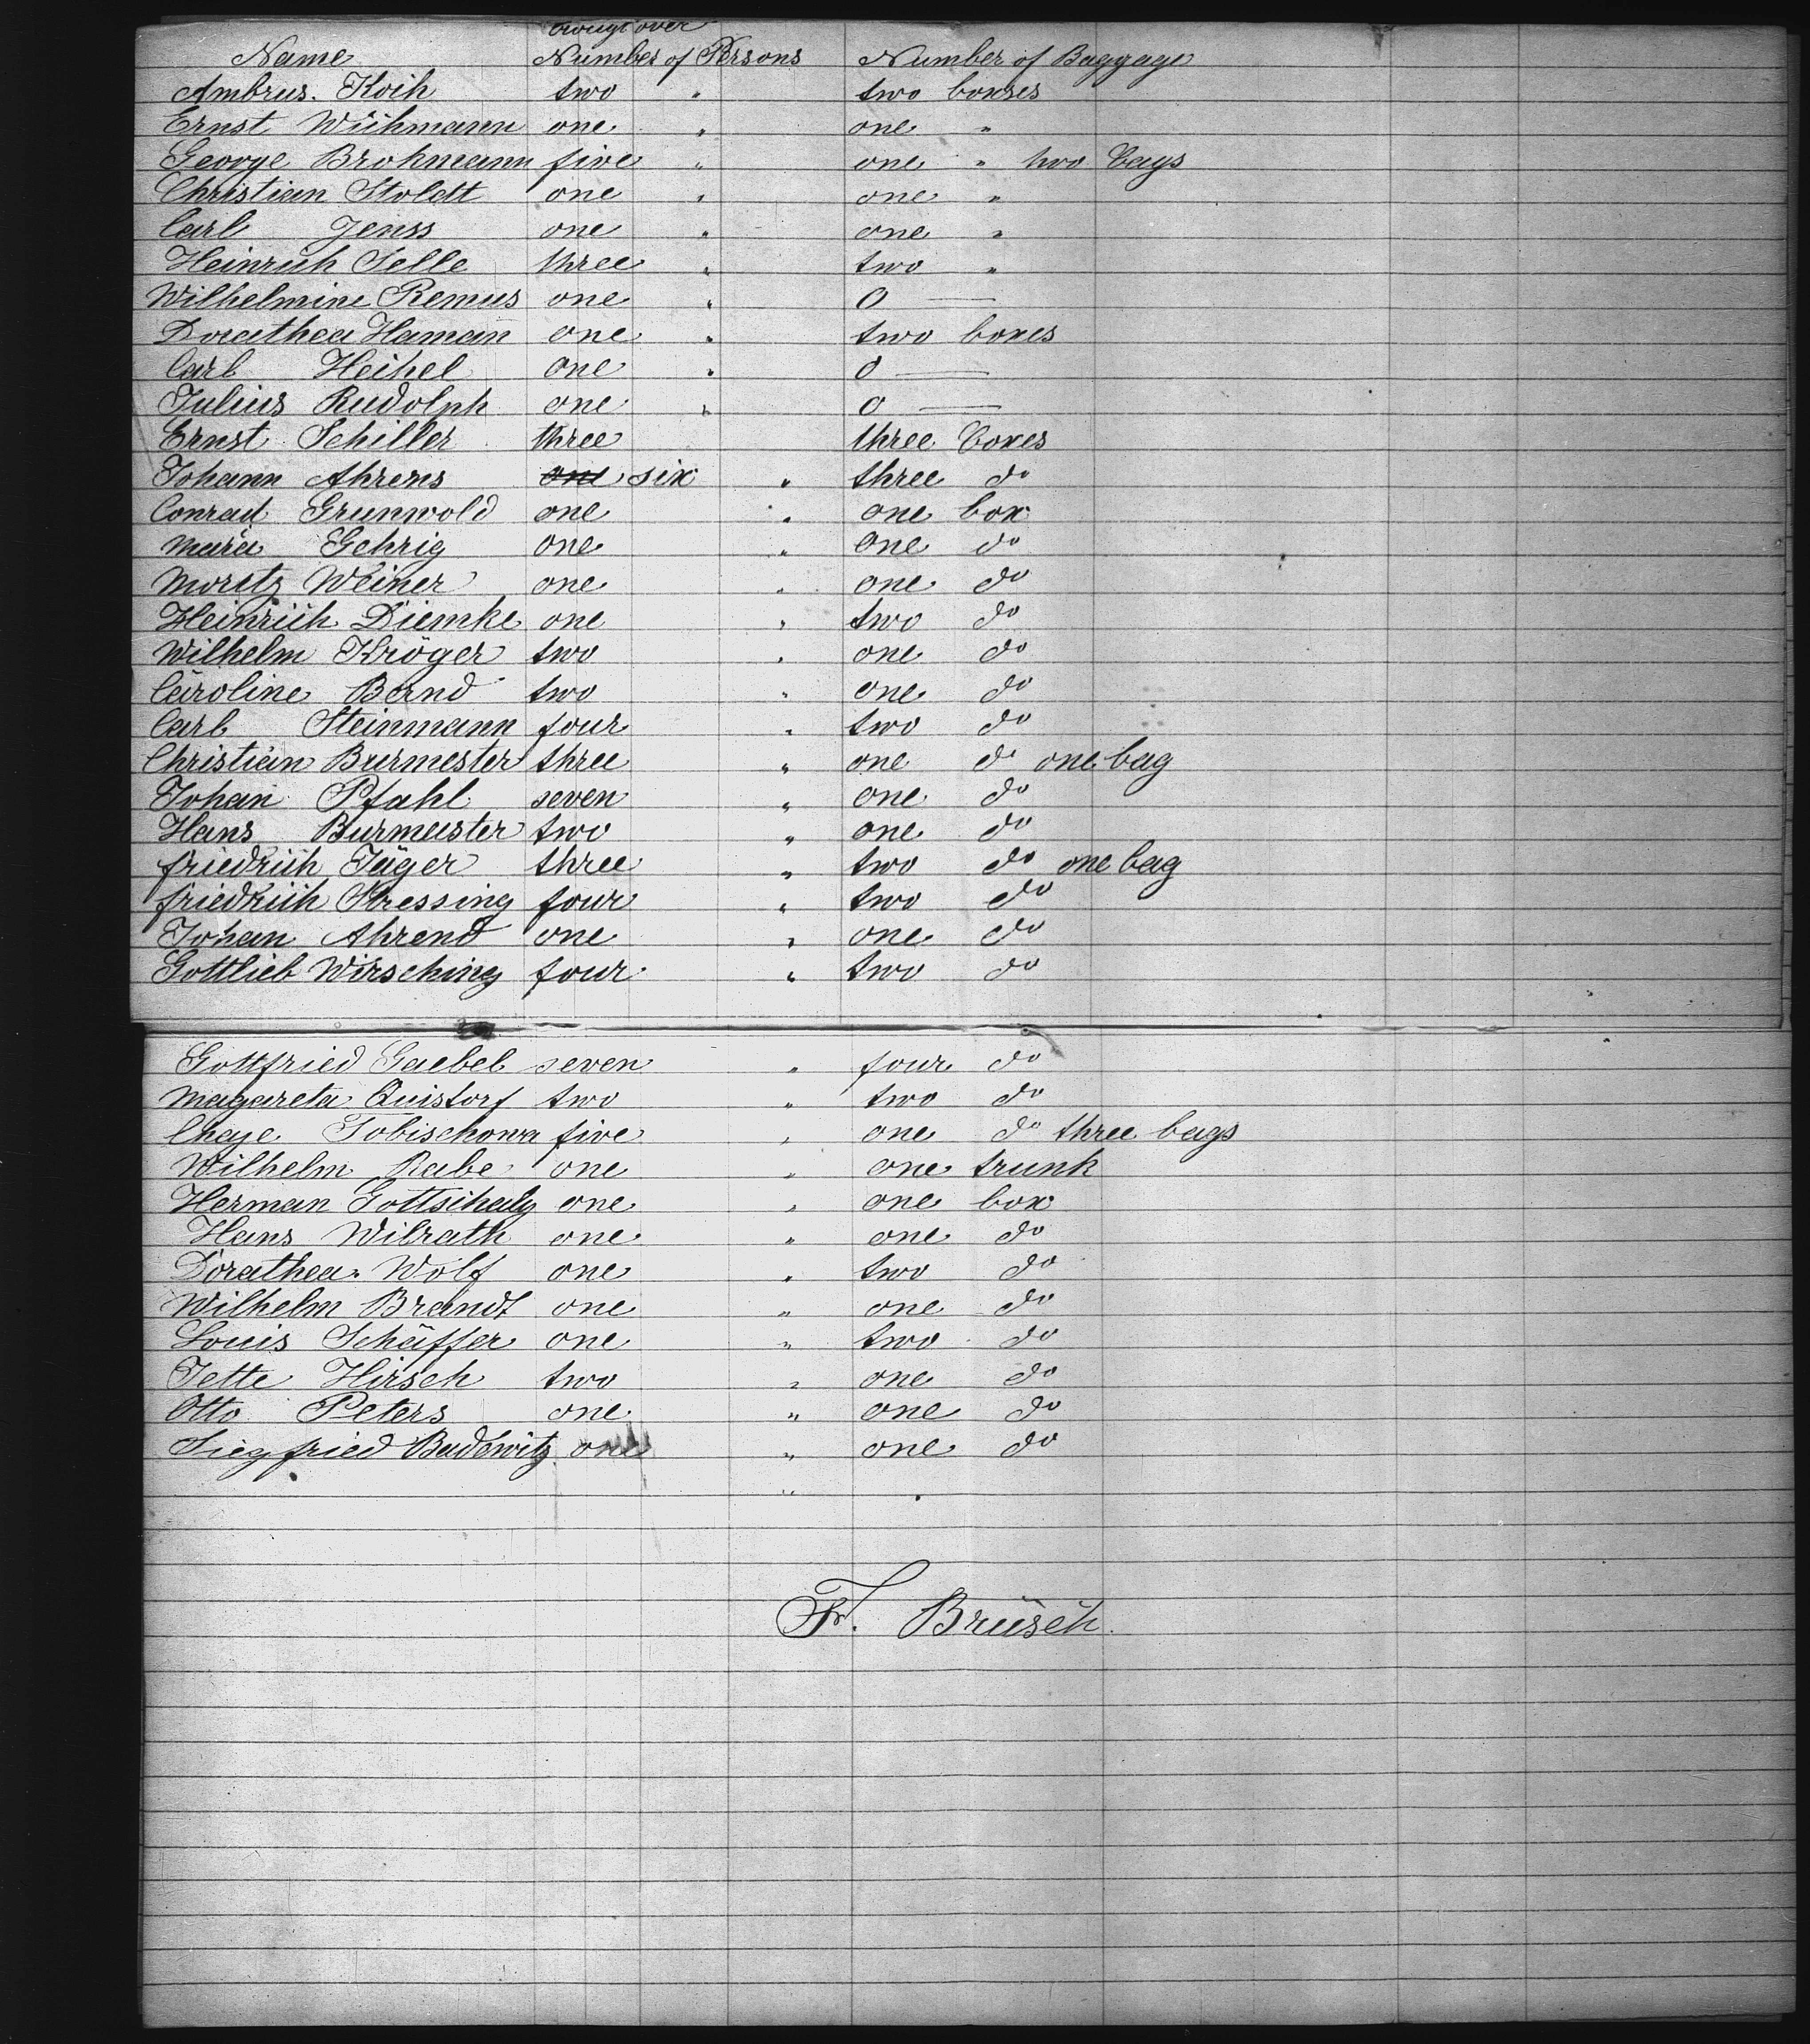 brougt over
Name Number of Persons Number of Baggage
Ambrus. Koch two " two boxses
Ernst Wichmann one " one "
George Brohmann five " one " two bags
Christian Stoldt one " one "
Carl Jenss one " one "
Heinrich Selle three " two "
Wilhelmine Remus one " 0 —
Dorathea Haman one " two boxes
Carl Heikel one " 0 —
Julius Rudolph one " 0 —
Ernst Schiller three three boxes
Johann Ahrens one six " three do
Conrad Grunwold one " one box
Maria Gehrig one " one do
Moritz Weiner one " one do
Heinrich Diemke one " two do
Wilhelm Kröger two " one do
Caroline Bernd two " one do
Carl Steinmann four " two do
Christian Burmester three " one do one bag
Johan Pfahl seven " one do
Hans Burmeister two " one do
Friedrich Jäger three " two do one bag
Friedrich Stressing four " two do
Johan Ahrend one " one do
Gottlieb Wirsching four " two do
Gottfried Gaebel seven " four do
Magareta Quistorf two " two do
Chaje Tobischowa five " one do three bags
Wilhelm Rabe one " one trunk
Herman Gottschalg one " one box
Hans Wilrath one " one do
Dorathea Wolf one " two do
Wilhelm Brandt one " one do
Louis Schäffer one " two do
Jette Hirsch two " one do
Otto Peters one " one do
Siegfried Budewitz one " one do
"
F. Brüsch.